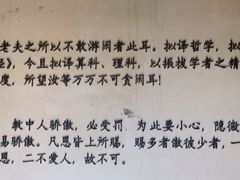 老夫之所以不敢游闲者此耳。拟译哲学,拟
》,今且拟译算科、理科,以振拔学者之精
度,所望汝等万万不可贪闲耳!
教中人骄傲,必受罚 为此要小心,隐微
易骄傲。凡恩皆上所赐,赐多者傲彼少者,一
恩,二不爱人,故不可。